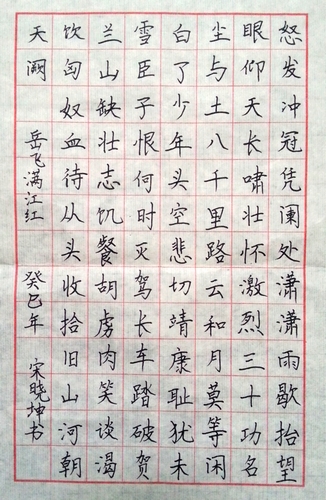 怒发冲冠凭阑处潇潇雨歇抬望
眼仰天长啸壮怀激烈三十功名
尘与土八千里路云和月莫等闲
白了少年头空悲切靖康耻犹未
雪臣子恨何时灭驾长车踏破贺
兰山缺壮志饥餐胡虏肉笑谈渴
饮匈奴血待从头收拾旧山河朝
天阙 岳飞满江红 癸巳年 宋晓坤书